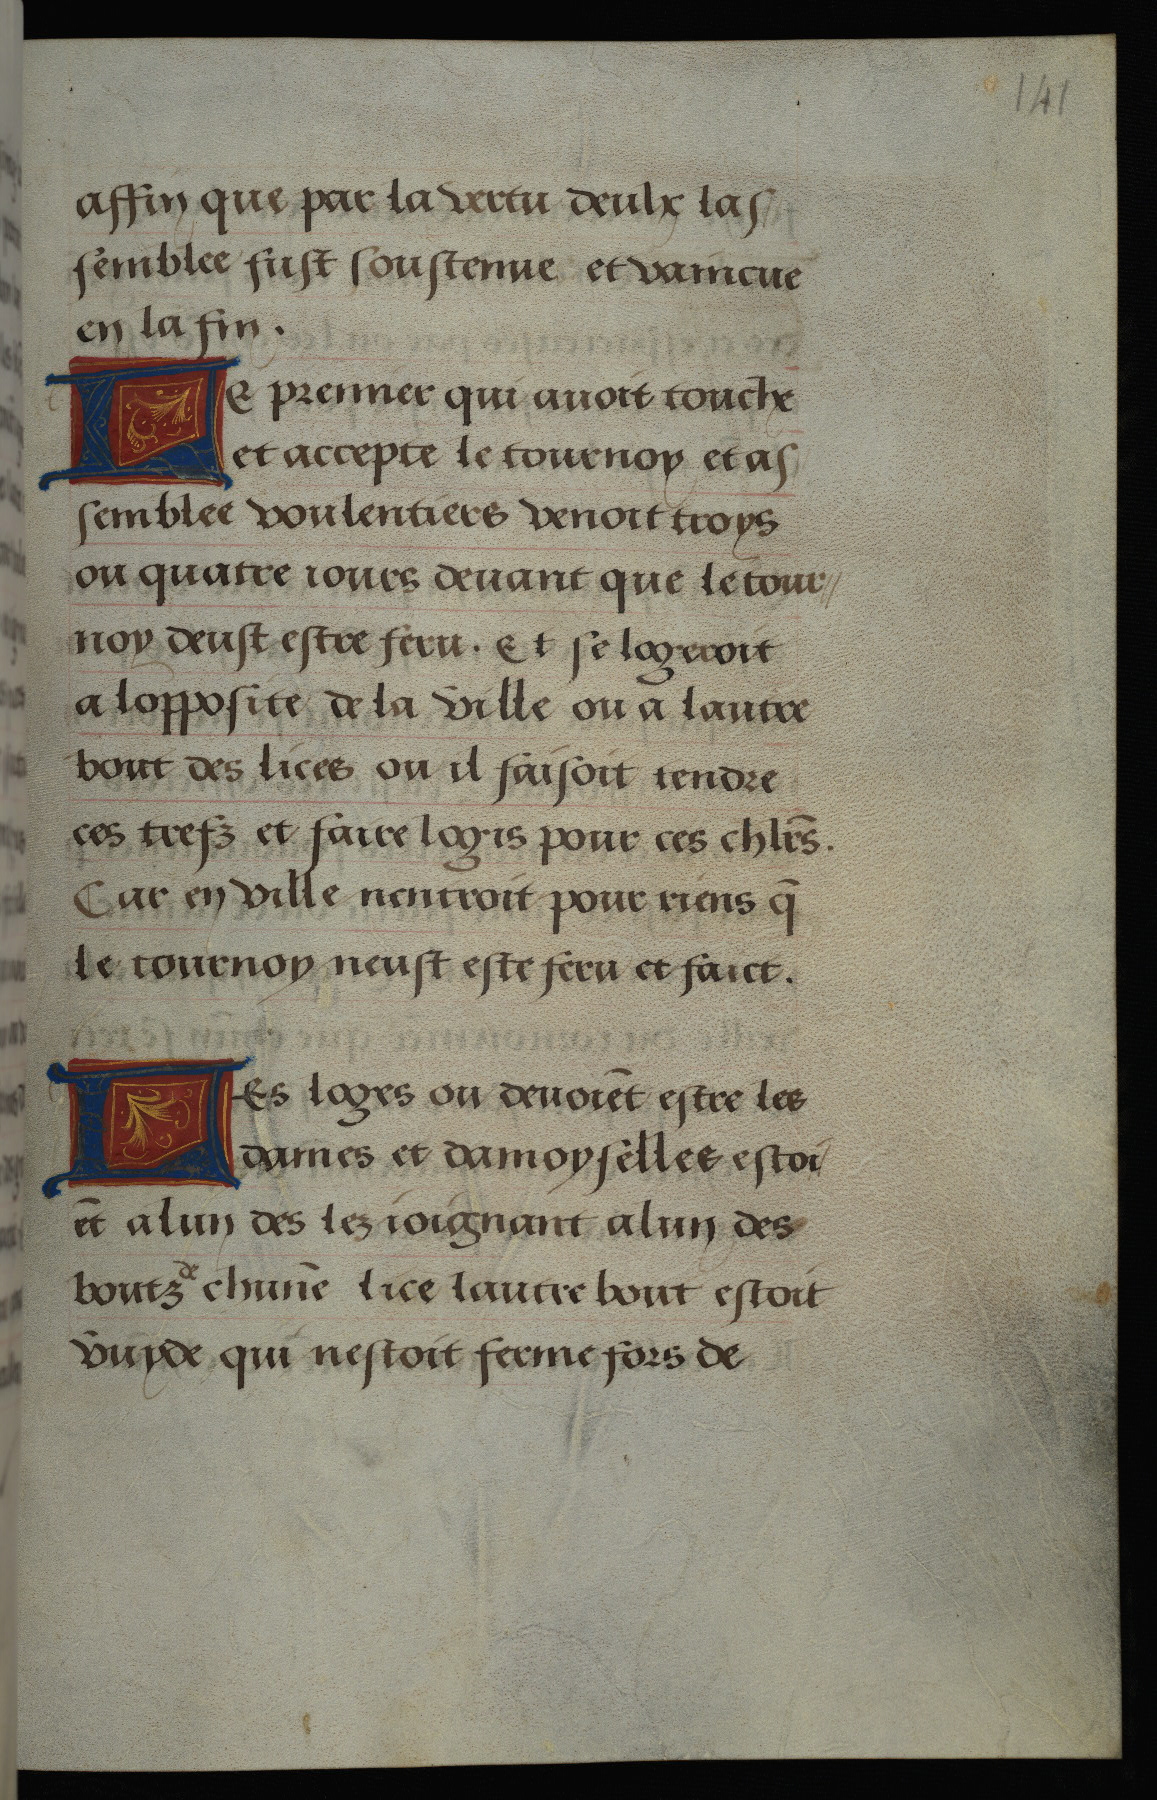 141
affin que par la vertu deulx las
semblee fust soustenue et vaincue
en la fin.
LE premier qui auoit touche
et accepte le tournoy et as
semblee voulentiers venoit troys
ou quatre iours deuant que le tour//
noy deust estre feru. Et se logeroit
a lopposite de la ville ou a lautre
bout des lices ou il faisoit tendre
ces trefz et faire logis pour ces chlr̃s.
Car en ville nentroit pour riens q̃
le tournoy neust este feru et faict.
LEs loges ou deuoiẽt estre les
dames et damoyselles estoi/
ẽt a lun des lez ioignant a lun des
boutz de chunẽ lice lautre bout estoit
vuyde qui nestoit ferme fors de